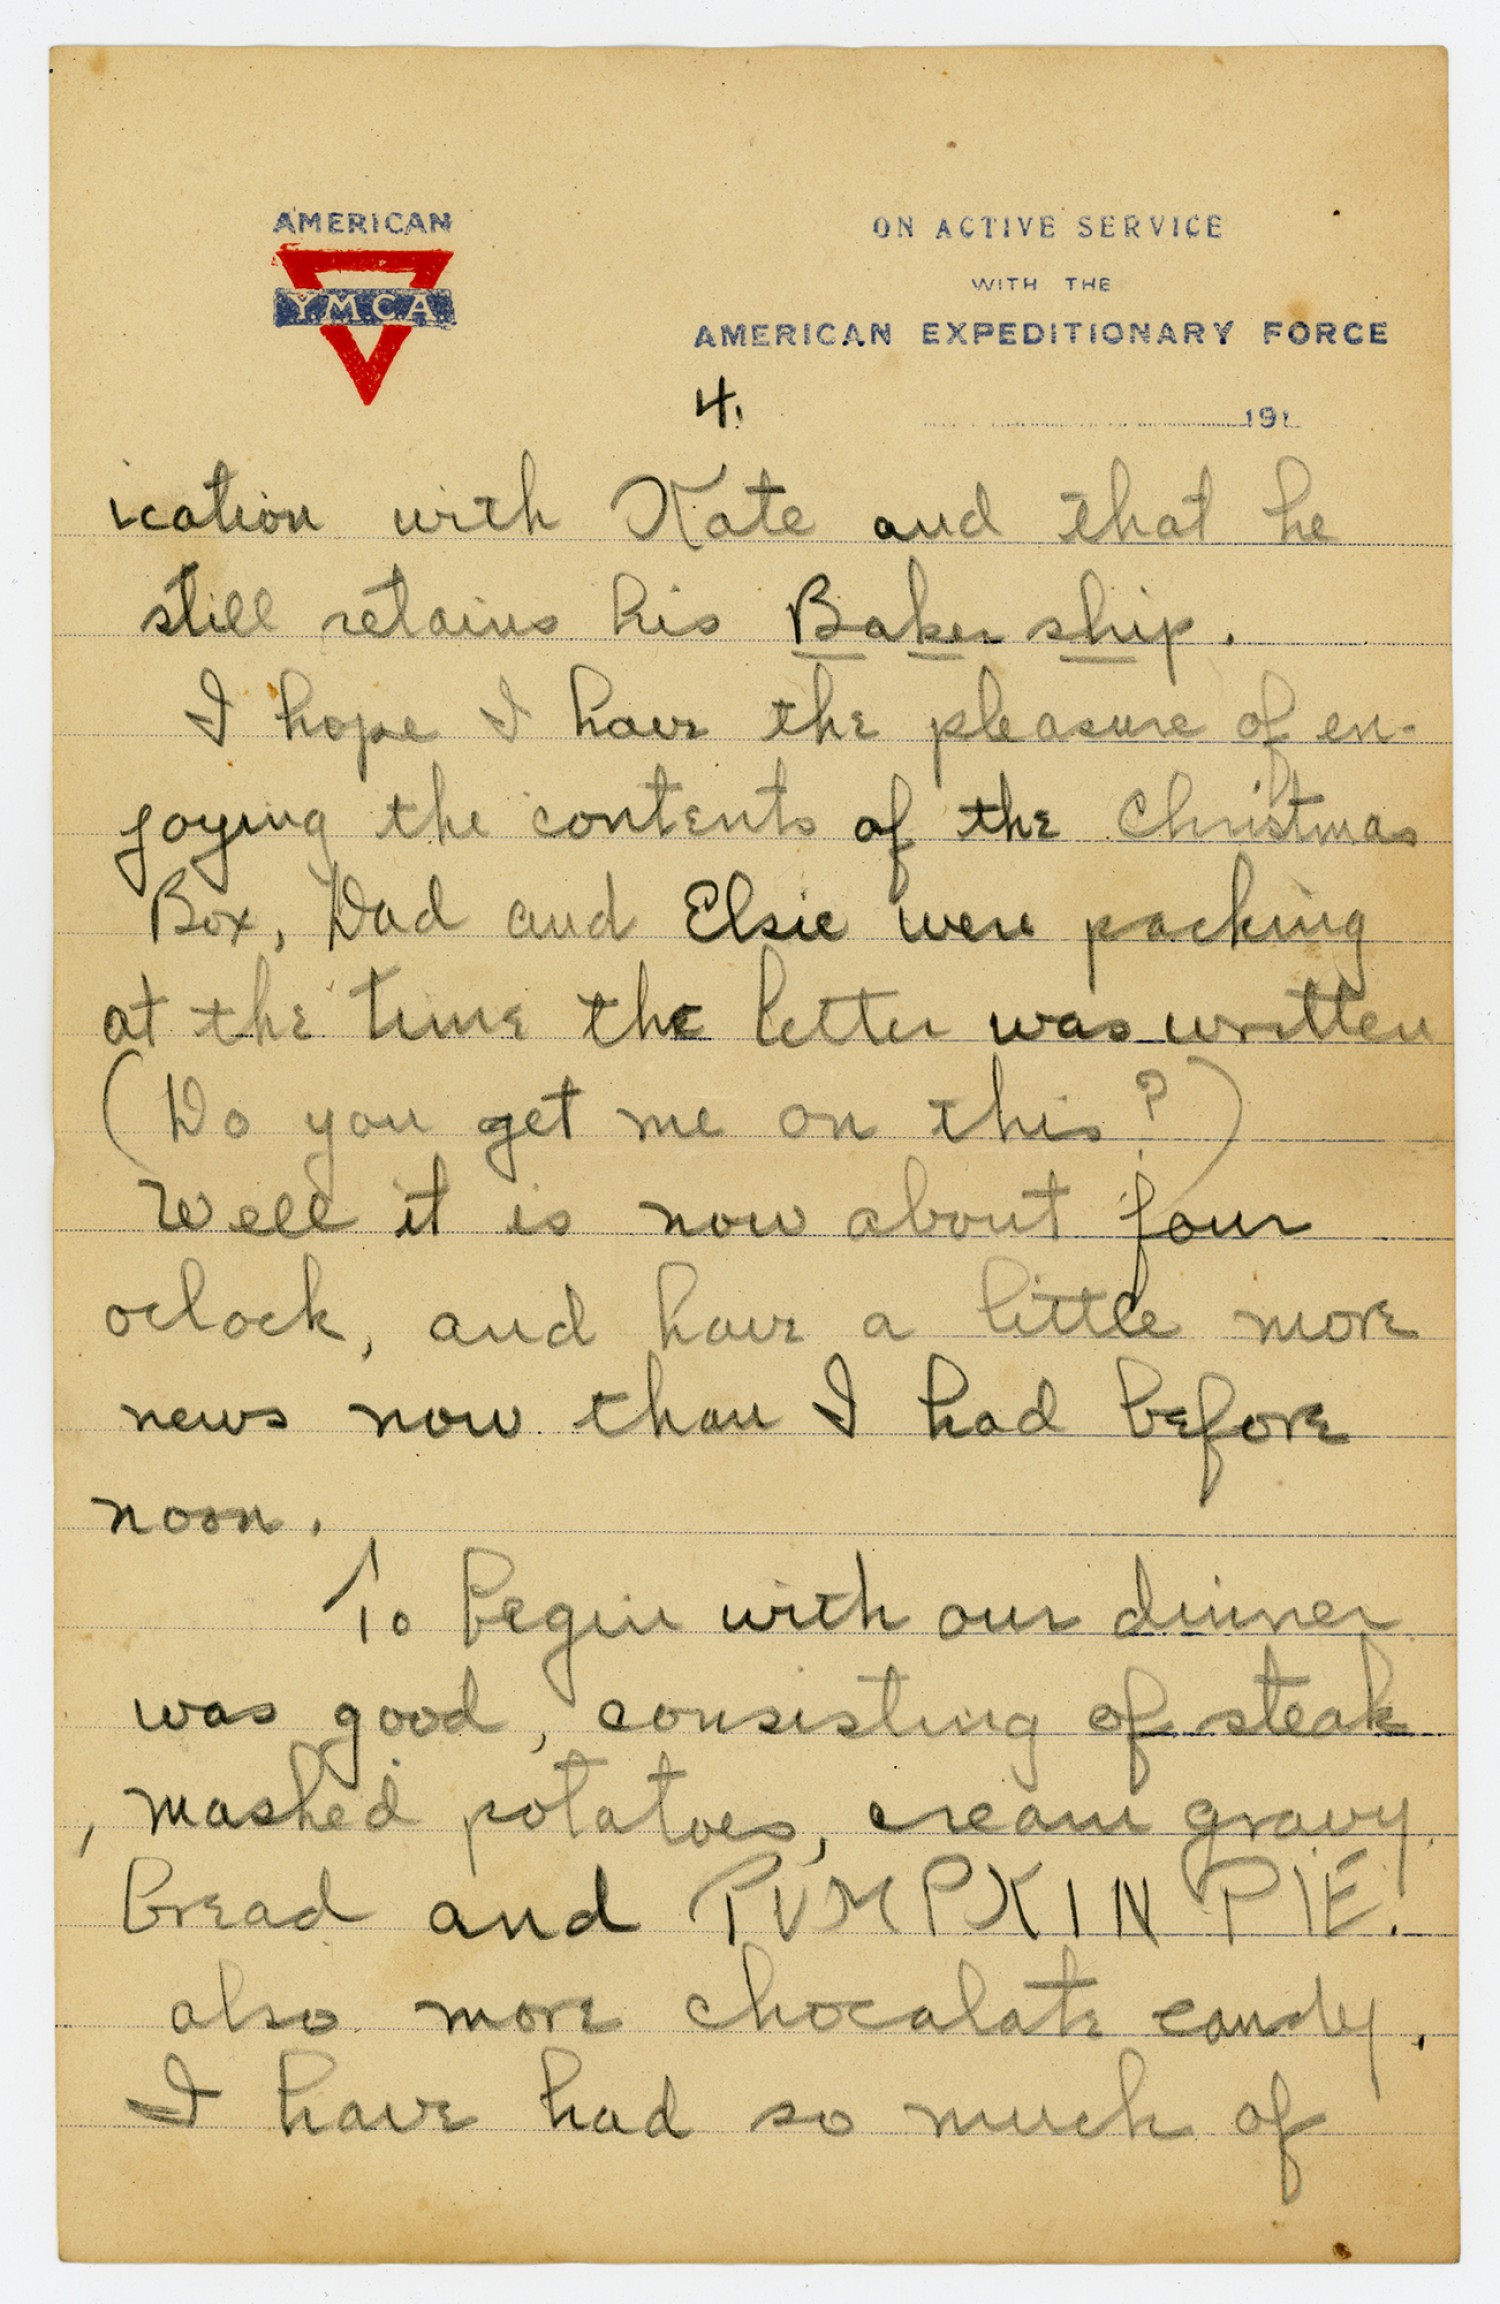 AMERICAN
YMCA
ON ACTIVE SERVICE
WITH THE
AMERICAN EXPEDITIONARY FORCE
4.
191
ication with Kate and that he
still retains his Baker ship.
I hope I have the pleasure of en-
joying the contents of the Christmas
Box, Dad and Elsie were packing
at the time the letter was written
(Do you get me on this?)
Well it is now about four
oclock, and have a little more
news now than I had before
noon.
To begin with our dinner
was good, consisting of steak
, mashed potatoes, cream gravy,
bread and PUMPKIN PIE.
also more chocalate candy.
I have had so much of